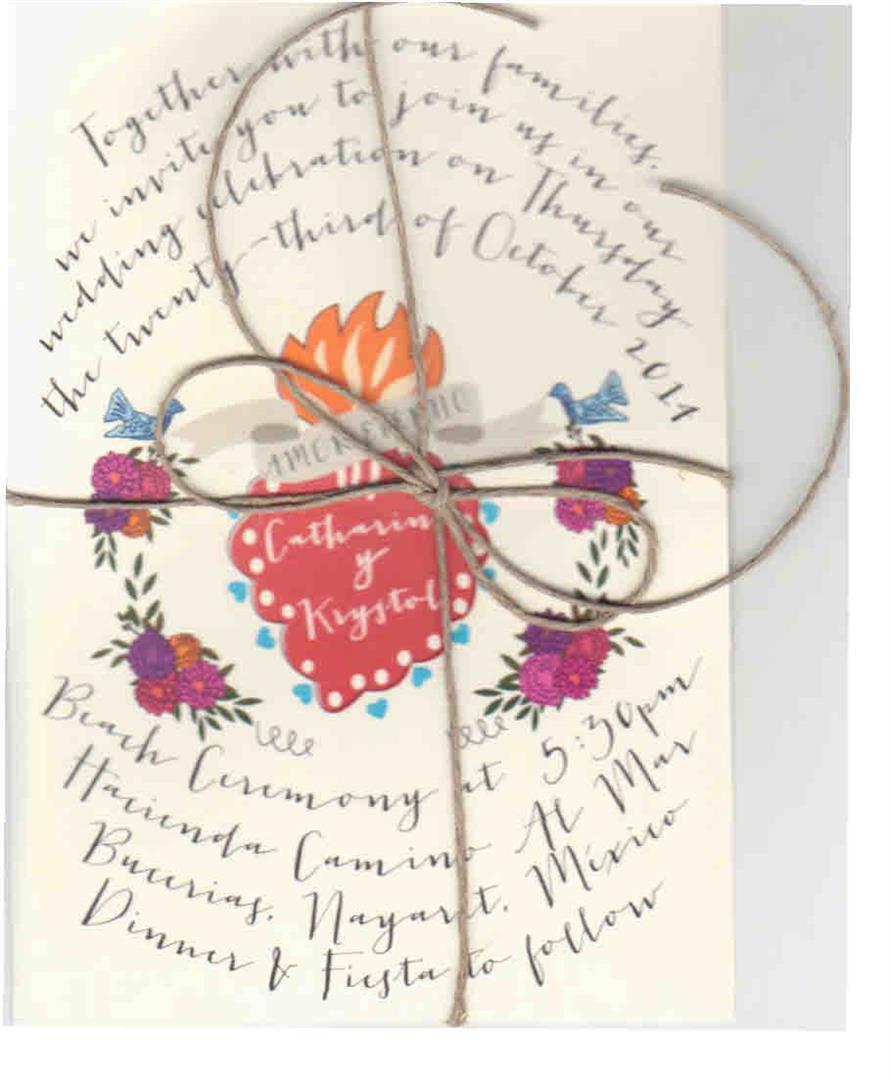 Together with our families,
we invite you to join us in our
wedding celebration on Thursday
the twenty-third of October 2014
AMOR ETERNO
Catharin
y
Krystol
Beach Ceremony at 5:30pm
Hacienda Camino Al Mar
Bucerias, Nayarit, México
Dinner & Fiesta to follow